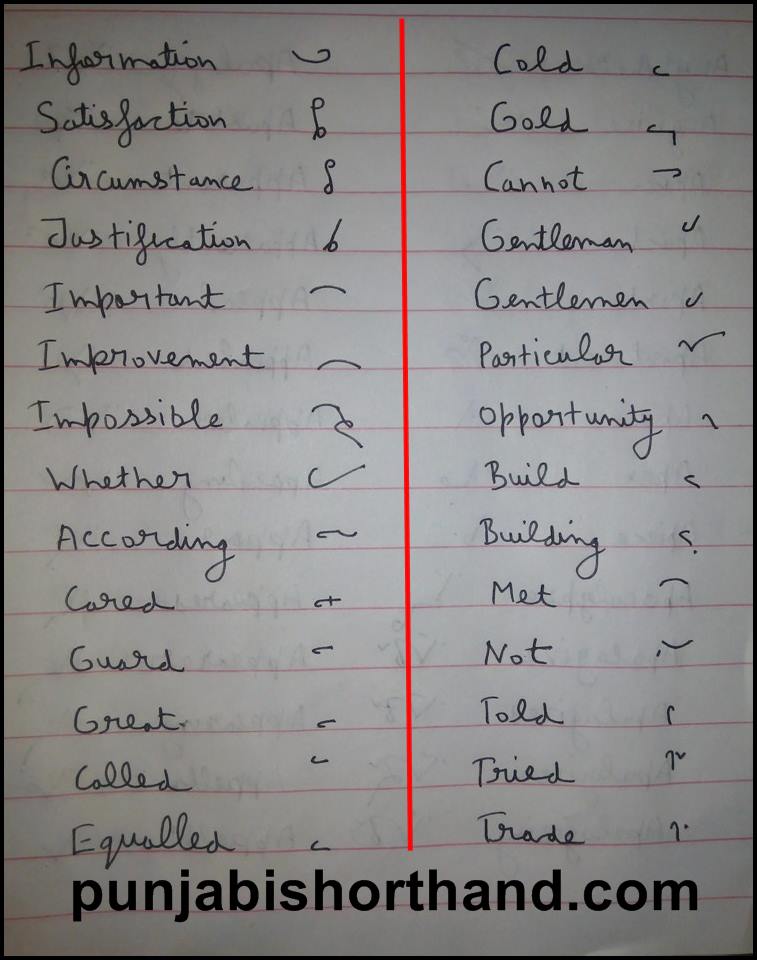 Information
Satisfaction
Circumstance
Justification
Important
Improvement
Impossible
Whether
According
Cared
Guard
Great
Called
Equalled
Cold
Gold
Cannot
Gentleman
Gentlemen
Particular
Opportunity
Build
Building
Met
Not
Told
Tried
Trade
punjabishorthand.com